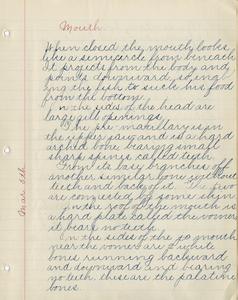 Mouth.
When closed the mouth looks
like a semicircle from beneath
It projects from the body and
points downward, so
ing the fish to suck his food
from the bottom.
In the sides of the head are
large gill openings.
The pre-maxillary is in
the upper jaw and is a hard
arched bone bearing small
sharp spines called teeth.
From its base branches off
another similar bone without
teeth and back of it. The two
are connected by some skin
In the roof of the mouth is
a hard plate called the vomer
it bears no teeth.
On the sides of the mouth
near the vomer are 2 white
bones running backward
and downward and bearing
no teeth. these are the palatine
bones.
Mar 8th